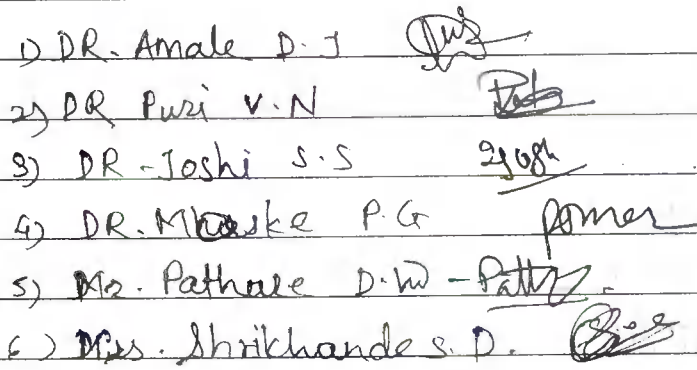 1) DR. Amale D. J
2) DR Puri V.N
3) DR - Joshi S.S
4) DR. Mhaske P.G
5) Mr. Pathare D.W -
6) Mrs. Shrikhande S. D.